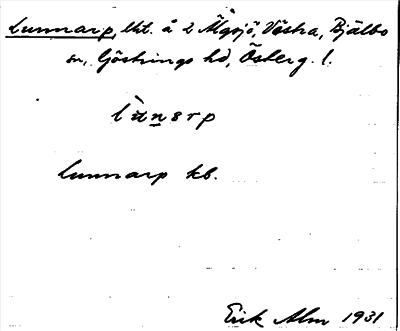 Lunnarp, lht. å 2 Älgsjö, Västra, Bjälbo
sn, Göstrings hd, Österg. l.
lùnsrp
Lunnarp kb.
Erik Alm 1931